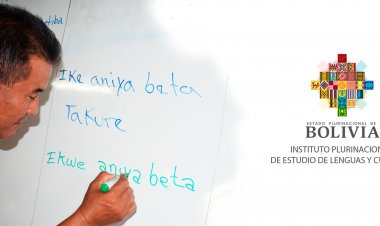 Ike aniya beta
Takure
Ekwe aniya beta
ESTADO PLURINACIONAL DE
BOLIVIA
INSTITUTO PLURINACION
DE ESTUDIO DE LENGUAS Y CU